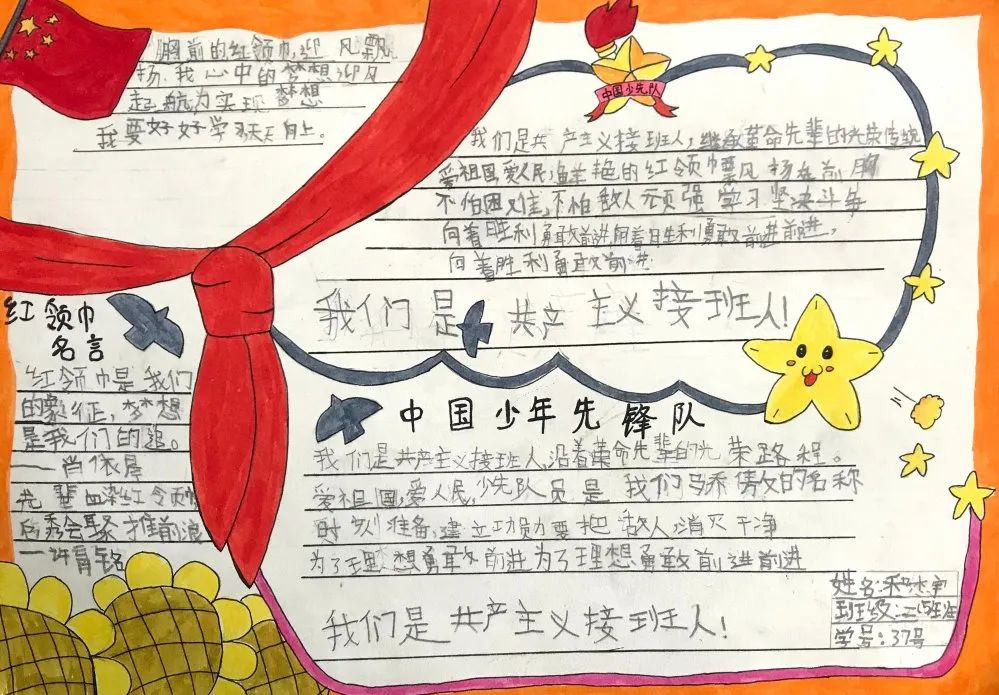 胸前的红领巾,迎风飘
扬,我心中的梦想迎风
起航为实现梦想
我要好好学习天天向上。
中国少先队
我们是共产主义接班人,继承革命先辈的光荣传统
爱祖国,爱人民,鲜艳的红领巾飘扬在前胸
不怕困难,不怕敌人顽强学习坚决斗争
向着胜利勇敢前进,向着胜利勇敢前进前进,
向着胜利勇敢前进
我们是共产主义接班人!
红领巾
名言
红领巾是我们
的象征,梦想
是我们的追。
先辈血染红领
推前浪
中国少年先锋队
我们是共产主义接班人,沿着革命先辈的光荣路程。
爱祖国,爱人民,少先队员是我们骄傲的名称
时刻准备,建立功要把敌人消灭干净
为了理想勇敢前进为了理想勇敢前进前进
我们是共产主义接班人!
姓名:
班级:
学号:37号